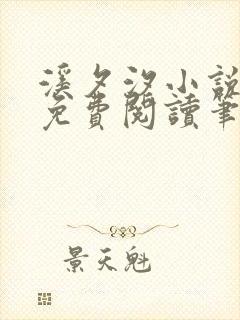 溪夕汐小說
免費閱讀筆
景天魁